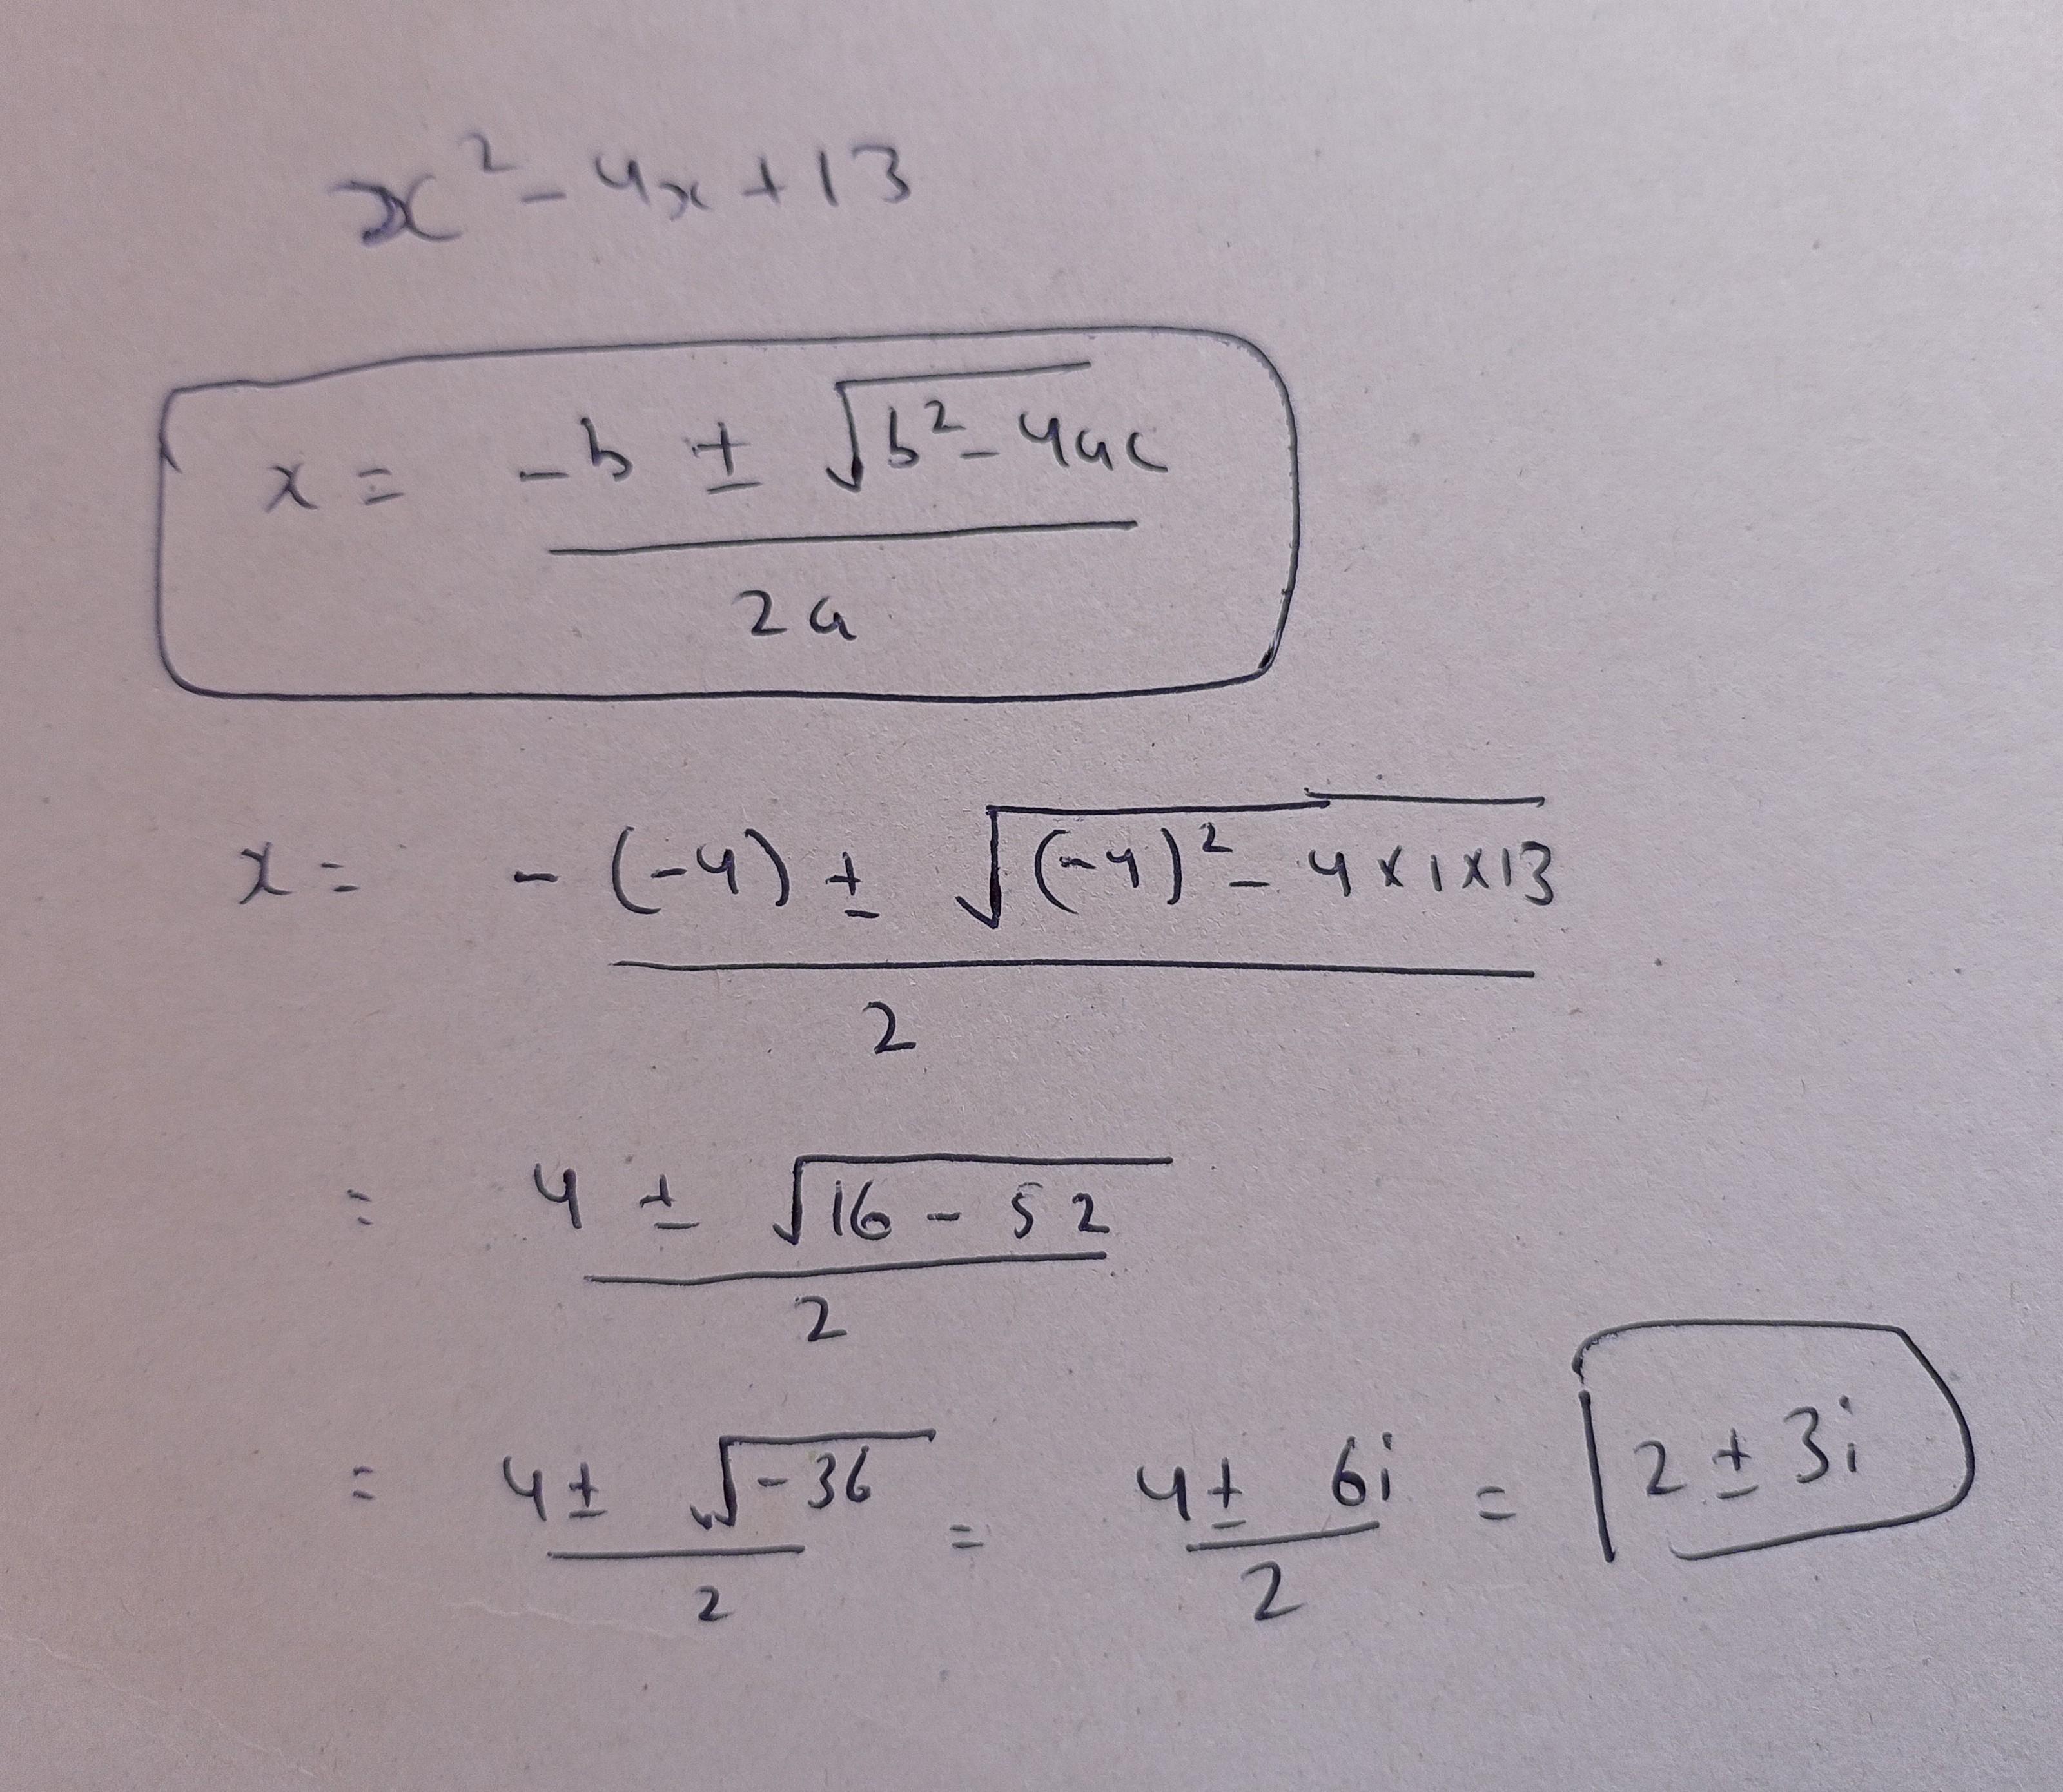 x² - 4x + 13
x = (-b ± √(b² - 4ac)) / 2a
x = (-(-4) ± √((-4)² - 4×1×13)) / 2
= (4 ± √(16 - 52)) / 2
= (4 ± √(-36)) / 2 = (4 ± 6i) / 2 = 2 ± 3i